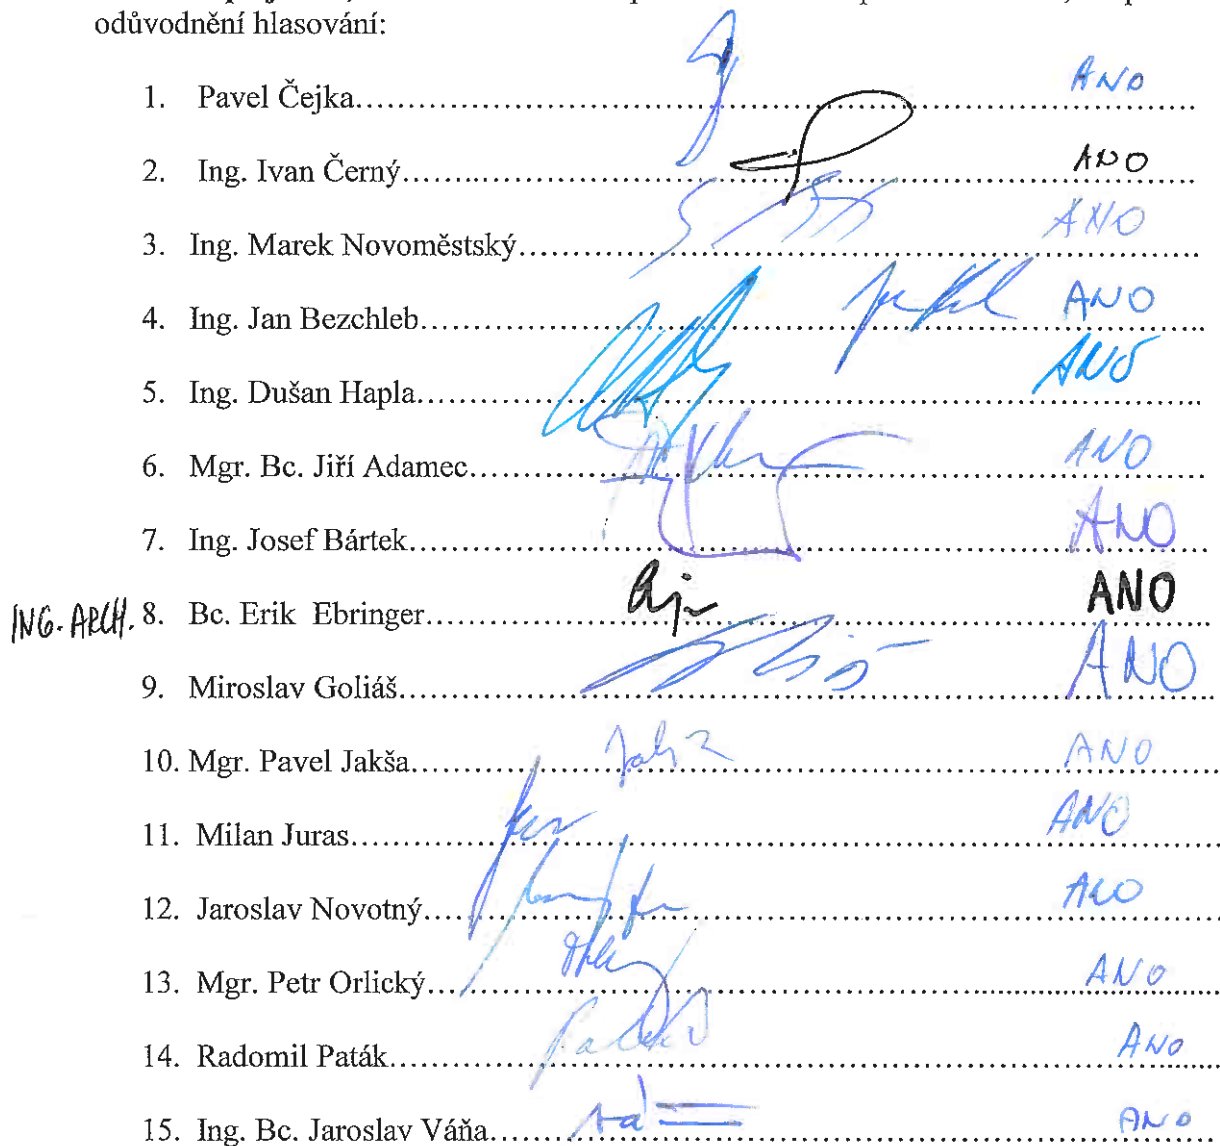 odůvodnění hlasování:
1. Pavel Čejka........ANO
2. Ing. Ivan Černý........ANO
3. Ing. Marek Novoměstský........ANO
4. Ing. Jan Bezchleb........ANO
5. Ing. Dušan Hapla........ANO
6. Mgr. Bc. Jiří Adamec........ANO
7. Ing. Josef Bártek........ANO
ING. ARCH. 8. Bc. Erik Ebringer........ANO
9. Miroslav Goliáš........ANO
10. Mgr. Pavel Jakša........ANO
11. Milan Juras........ANO
12. Jaroslav Novotný........ANO
13. Mgr. Petr Orlický........ANO
14. Radomil Paták........ANO
15. Ing. Bc. Jaroslav Váňa........ANO